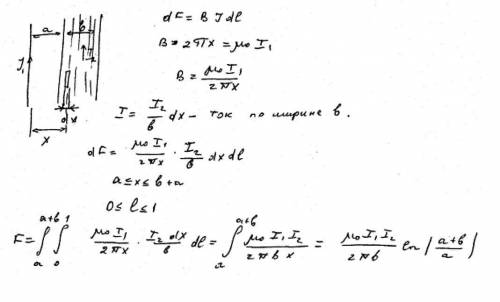 a b
I₁
x
0 x
dF = B I dl
B = 2πx = μ₀ I₁
B = μ₀ I₁ / 2πx
I = I₂/в dx – ток по ширине в.
dF = μ₀ I₁ / 2πx · I₂/в dx dl
a ≤ x ≤ в + a
0 ≤ l ≤ 1
F = ∫ₐᵃ⁺ᵇ ∫₀¹ μ₀ I₁ / 2πx · I₂ dx / в dl = ∫ₐᵃ⁺ᵇ μ₀ I₁ I₂ / 2πв x = μ₀ I₁ I₂ / 2πв ln (a+в / a)